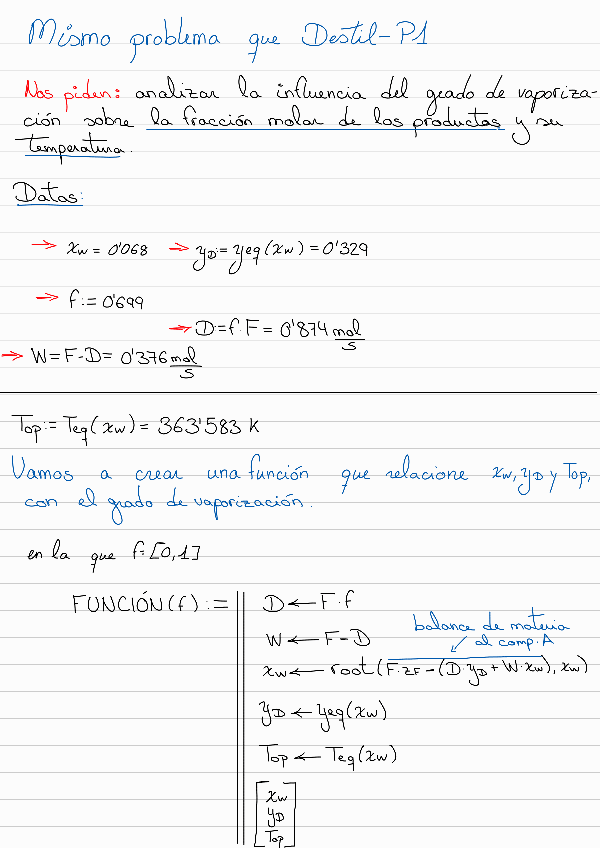 Mismo problema que Destil-P1
Nos piden: analizar la influencia del grado de vaporiza-
ción sobre la fracción molar de los productos y su
temperatura.
Datos:
→ xW = 0'068 → yD := yeq(xW) = 0'329
→ f := 0'699
→ D = f·F = 0'874 mol/s
→ W = F-D = 0'376 mol/s
Top := Teq(xW) = 363'583 K
Vamos a crear una función que relacione xW, yD y Top,
con el grado de vaporización.
en la que f = [0,1]
FUNCIÓN(f) := D ← F·f
balance de materia
al comp. A
W ← F-D
xW ← root(F·zF - (D·yD + W·xW), xW)
yD ← yeq(xW)
Top ← Teq(xW)
[xW
yD
Top]